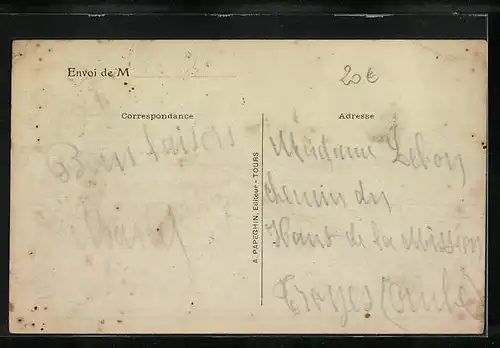 Envoi de M
20€
Correspondance
Adresse
A. PAPEGHIN, Editeur - TOURS
Madame Lebon
chemin du
Haut de la Mission
Troyes (Aube)